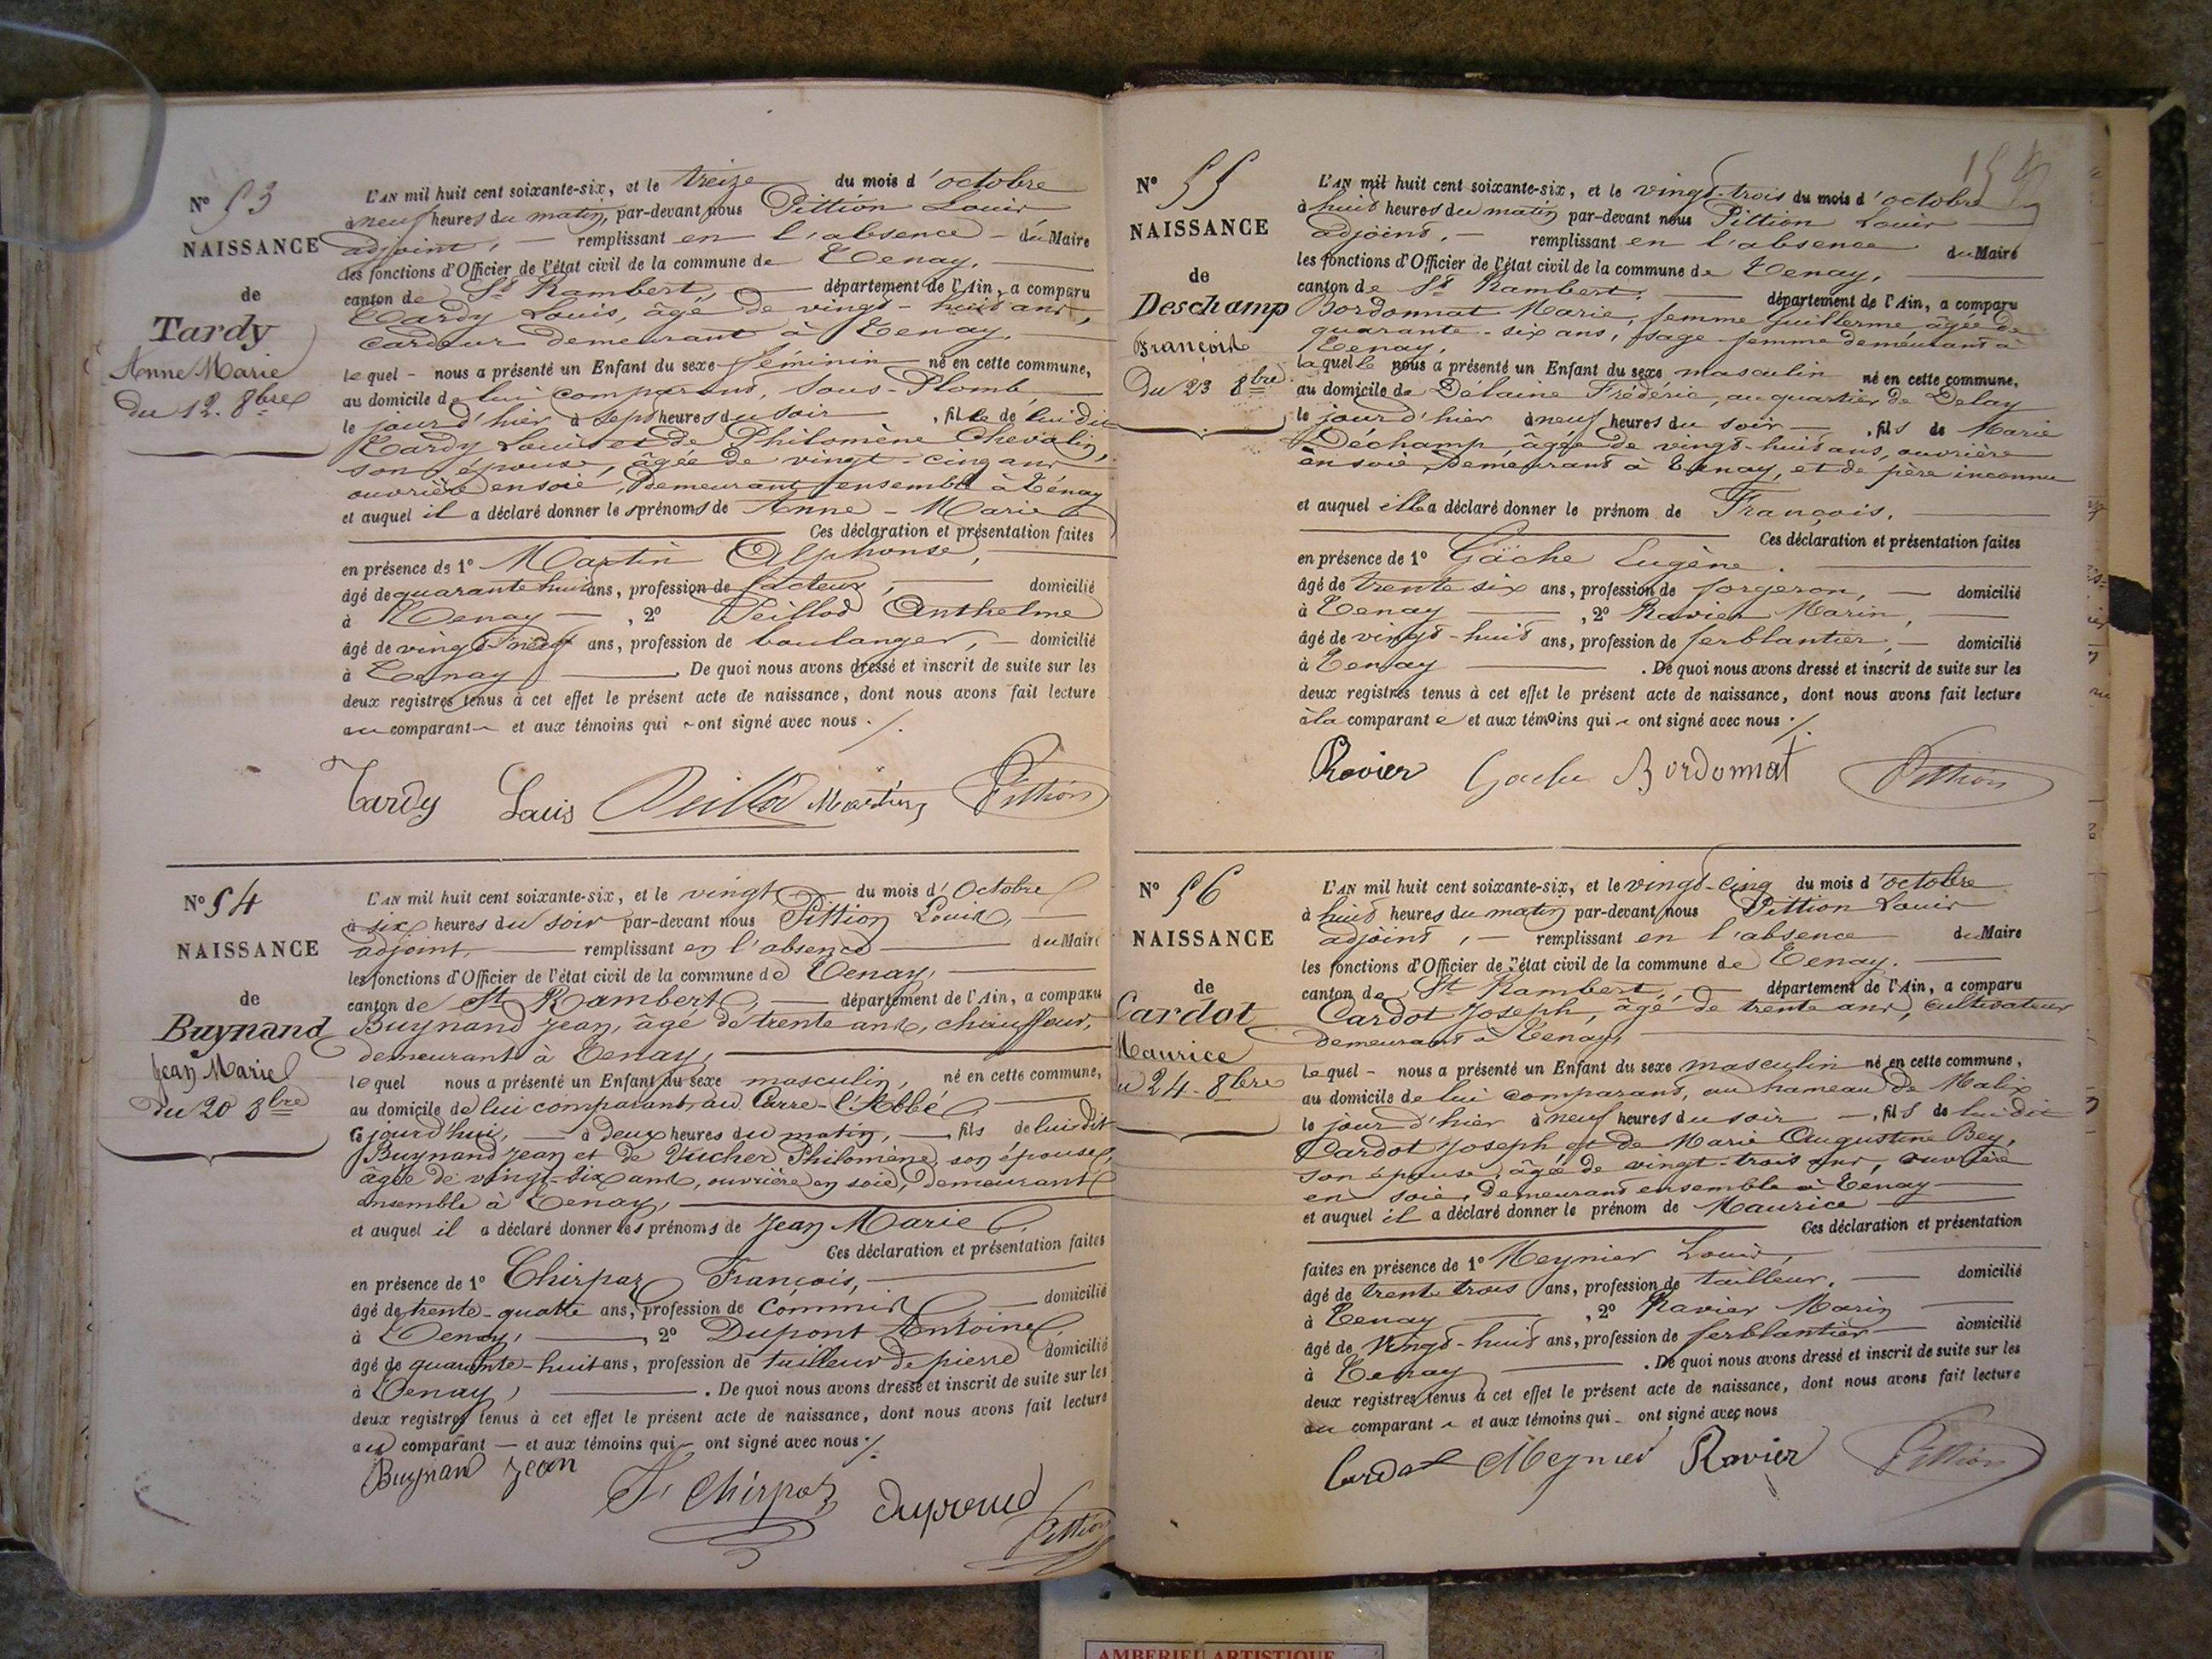 N° 53
NAISSANCE
de
Tardy
Anne Marie
du 12. 8bre
L'AN mil huit cent soixante-six, et le treize du mois d'octobre
à neuf heures du matin, par-devant nous Pittion Louis
adjoint, — remplissant en l'absence — du Maire
les fonctions d'Officier de l'état civil de la commune de Tenay,
canton de St Rambert, — département de l'Ain, a comparu
Tardy Louis, âgé de vingt-huit ans,
cardeur demeurant à Tenay,
lequel - nous a présenté un Enfant du sexe féminin né en cette commune,
au domicile de lui comparant, Sous-Plomb,
le jour d'hier à sept heures du soir, fille de lui dit
Tardy Louis et de Philomène Chevalin,
son épouse, âgée de vingt-cinq ans
ouvrière en soie, demeurant ensemble à Ténay
et auquel il a déclaré donner les prénoms de Anne-Marie
Ces déclaration et présentation faites
en présence de 1° Martin Alphonse,
âgé de quarante huit ans, profession de facteur, — domicilié
à Tenay —, 2° Peillod Anthelme
âgé de vingt neuf ans, profession de boulanger, — domicilié
à Tenay —. De quoi nous avons dressé et inscrit de suite sur les
deux registres tenus à cet effet le présent acte de naissance, dont nous avons fait lecture
au comparant et aux témoins qui ont signé avec nous ./.
Tardy Louis Peillod Martin Pittion
N° 54
NAISSANCE
de
Buynand
Jean Marie
du 20 8bre
L'AN mil huit cent soixante-six, et le vingt du mois d'Octobre
à six heures du soir par-devant nous Pittion Louis,
adjoint, — remplissant en l'absence — du Maire
les fonctions d'Officier de l'état civil de la commune de Tenay,
canton de St Rambert, — département de l'Ain, a comparu
Buynand Jean, âgé de trente ans, chauffeur,
demeurant à Tenay,
lequel nous a présenté un Enfant du sexe masculin, né en cette commune,
au domicile de lui comparant, au Carre-l'Abbé,
ce jourd'hui, — à deux heures du matin, — fils de lui dit
Buynand Jean et de Vucher Philomène, son épouse,
âgée de vingt-six ans, ouvrière en soie, demeurant
ensemble à Tenay,
et auquel il a déclaré donner les prénoms de Jean Marie
Ces déclaration et présentation faites
en présence de 1° Chirpaz François,
âgé de trente-quatre ans, profession de Commis — domicilié
à Tenay, —, 2° Dupont Antoine
âgé de quarante-huit ans, profession de tailleur de pierre domicilié
à Tenay, —. De quoi nous avons dressé et inscrit de suite sur les
deux registres tenus à cet effet le présent acte de naissance, dont nous avons fait lecture
au comparant — et aux témoins qui ont signé avec nous ./.
Buynand Jean F. Chirpaz Pittion
N° 55
NAISSANCE
de
Deschamp
François
Du 23 8bre
L'AN mil huit cent soixante-six, et le vingt-trois du mois d'octobre
à huit heures du matin par-devant nous Pittion Louis
adjoint, — remplissant en l'absence du Maire
les fonctions d'Officier de l'état civil de la commune de Tenay,
canton de St Rambert, — département de l'Ain, a comparu
Bordonnat Marie, femme Guillerme, âgée de
quarante-six ans, sage-femme demeurant à
Tenay,
laquelle nous a présenté un Enfant du sexe masculin né en cette commune,
au domicile de Délaine Frédéric, au quartier de Delay
le jour d'hier à neuf heures du soir —, fils de Marie
Dechamp, âgée de vingt-huit ans, ouvrière
en soie, demeurant à Tenay, et de père inconnu
et auquel elle a déclaré donner le prénom de François.
Ces déclaration et présentation faites
en présence de 1° Gâche Eugène.
âgé de trente six ans, profession de forgeron, — domicilié
à Tenay —, 2° Ravier Marin,
âgé de vingt-huit ans, profession de ferblantier, — domicilié
à Tenay —. De quoi nous avons dressé et inscrit de suite sur les
deux registres tenus à cet effet le présent acte de naissance, dont nous avons fait lecture
à la comparante et aux témoins qui ont signé avec nous ./.
Ravier Gache Bordonnat Pittion
N° 56
NAISSANCE
de
Cardot
Maurice
du 24. 8bre
L'AN mil huit cent soixante-six, et le vingt-cinq du mois d'octobre
à huit heures du matin par-devant nous Pittion Louis
adjoint, — remplissant en l'absence du Maire
les fonctions d'Officier de l'état civil de la commune de Tenay.
canton de St Rambert, — département de l'Ain, a comparu
Cardot Joseph, âgé de trente ans, cultivateur
demeurant à Tenay,
lequel - nous a présenté un Enfant du sexe masculin né en cette commune,
au domicile de lui comparant, au hameau de Malix
le jour d'hier à neuf heures du soir —, fils de lui dit
Cardot Joseph, et de Marie Augustine Bey,
son épouse, âgée de vingt-trois ans, ouvrière
en soie, demeurant ensemble à Tenay
et auquel il a déclaré donner le prénom de Maurice
Ces déclaration et présentation
faites en présence de 1° Meynier Louis,
âgé de trente trois ans, profession de tailleur. — domicilié
à Tenay —, 2° Ravier Marin
âgé de vingt-huit ans, profession de ferblantier — domicilié
à Tenay —. De quoi nous avons dressé et inscrit de suite sur les
deux registres tenus à cet effet le présent acte de naissance, dont nous avons fait lecture
au comparant et aux témoins qui ont signé avec nous
Cardot Meynier Ravier Pittion
AMBERIEU ARTISTIQUE